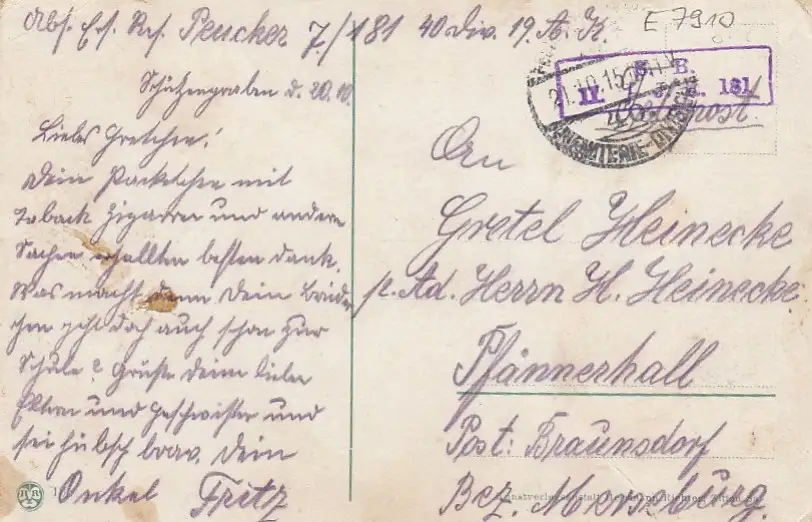 Abs. Ers. Res. Peucker 7./181 40 Div. 19. A. K.
E 7910
Schützengraben d. 20.10.
Liebes Gretchen!
Dein Packetchen mit
Taback Zigarren und andern
Sachen erhallten besten Dank.
Was macht denn Dein Brüder
chen geht doch auch schon zur
Schule? Grüße Deine lieben
Eltern und Geschwister und
sei hübsch brav. Dein
Onkel Fritz
S. B.
II. J. R. 181.
21.10.15
INFANTERIE-DIVISION
Feldpost.
An
Gretel Heinecke
p. Ad. Herrn H. Heinecke
Pfännerhall
Post: Braunsdorf
Bez. Merseburg.